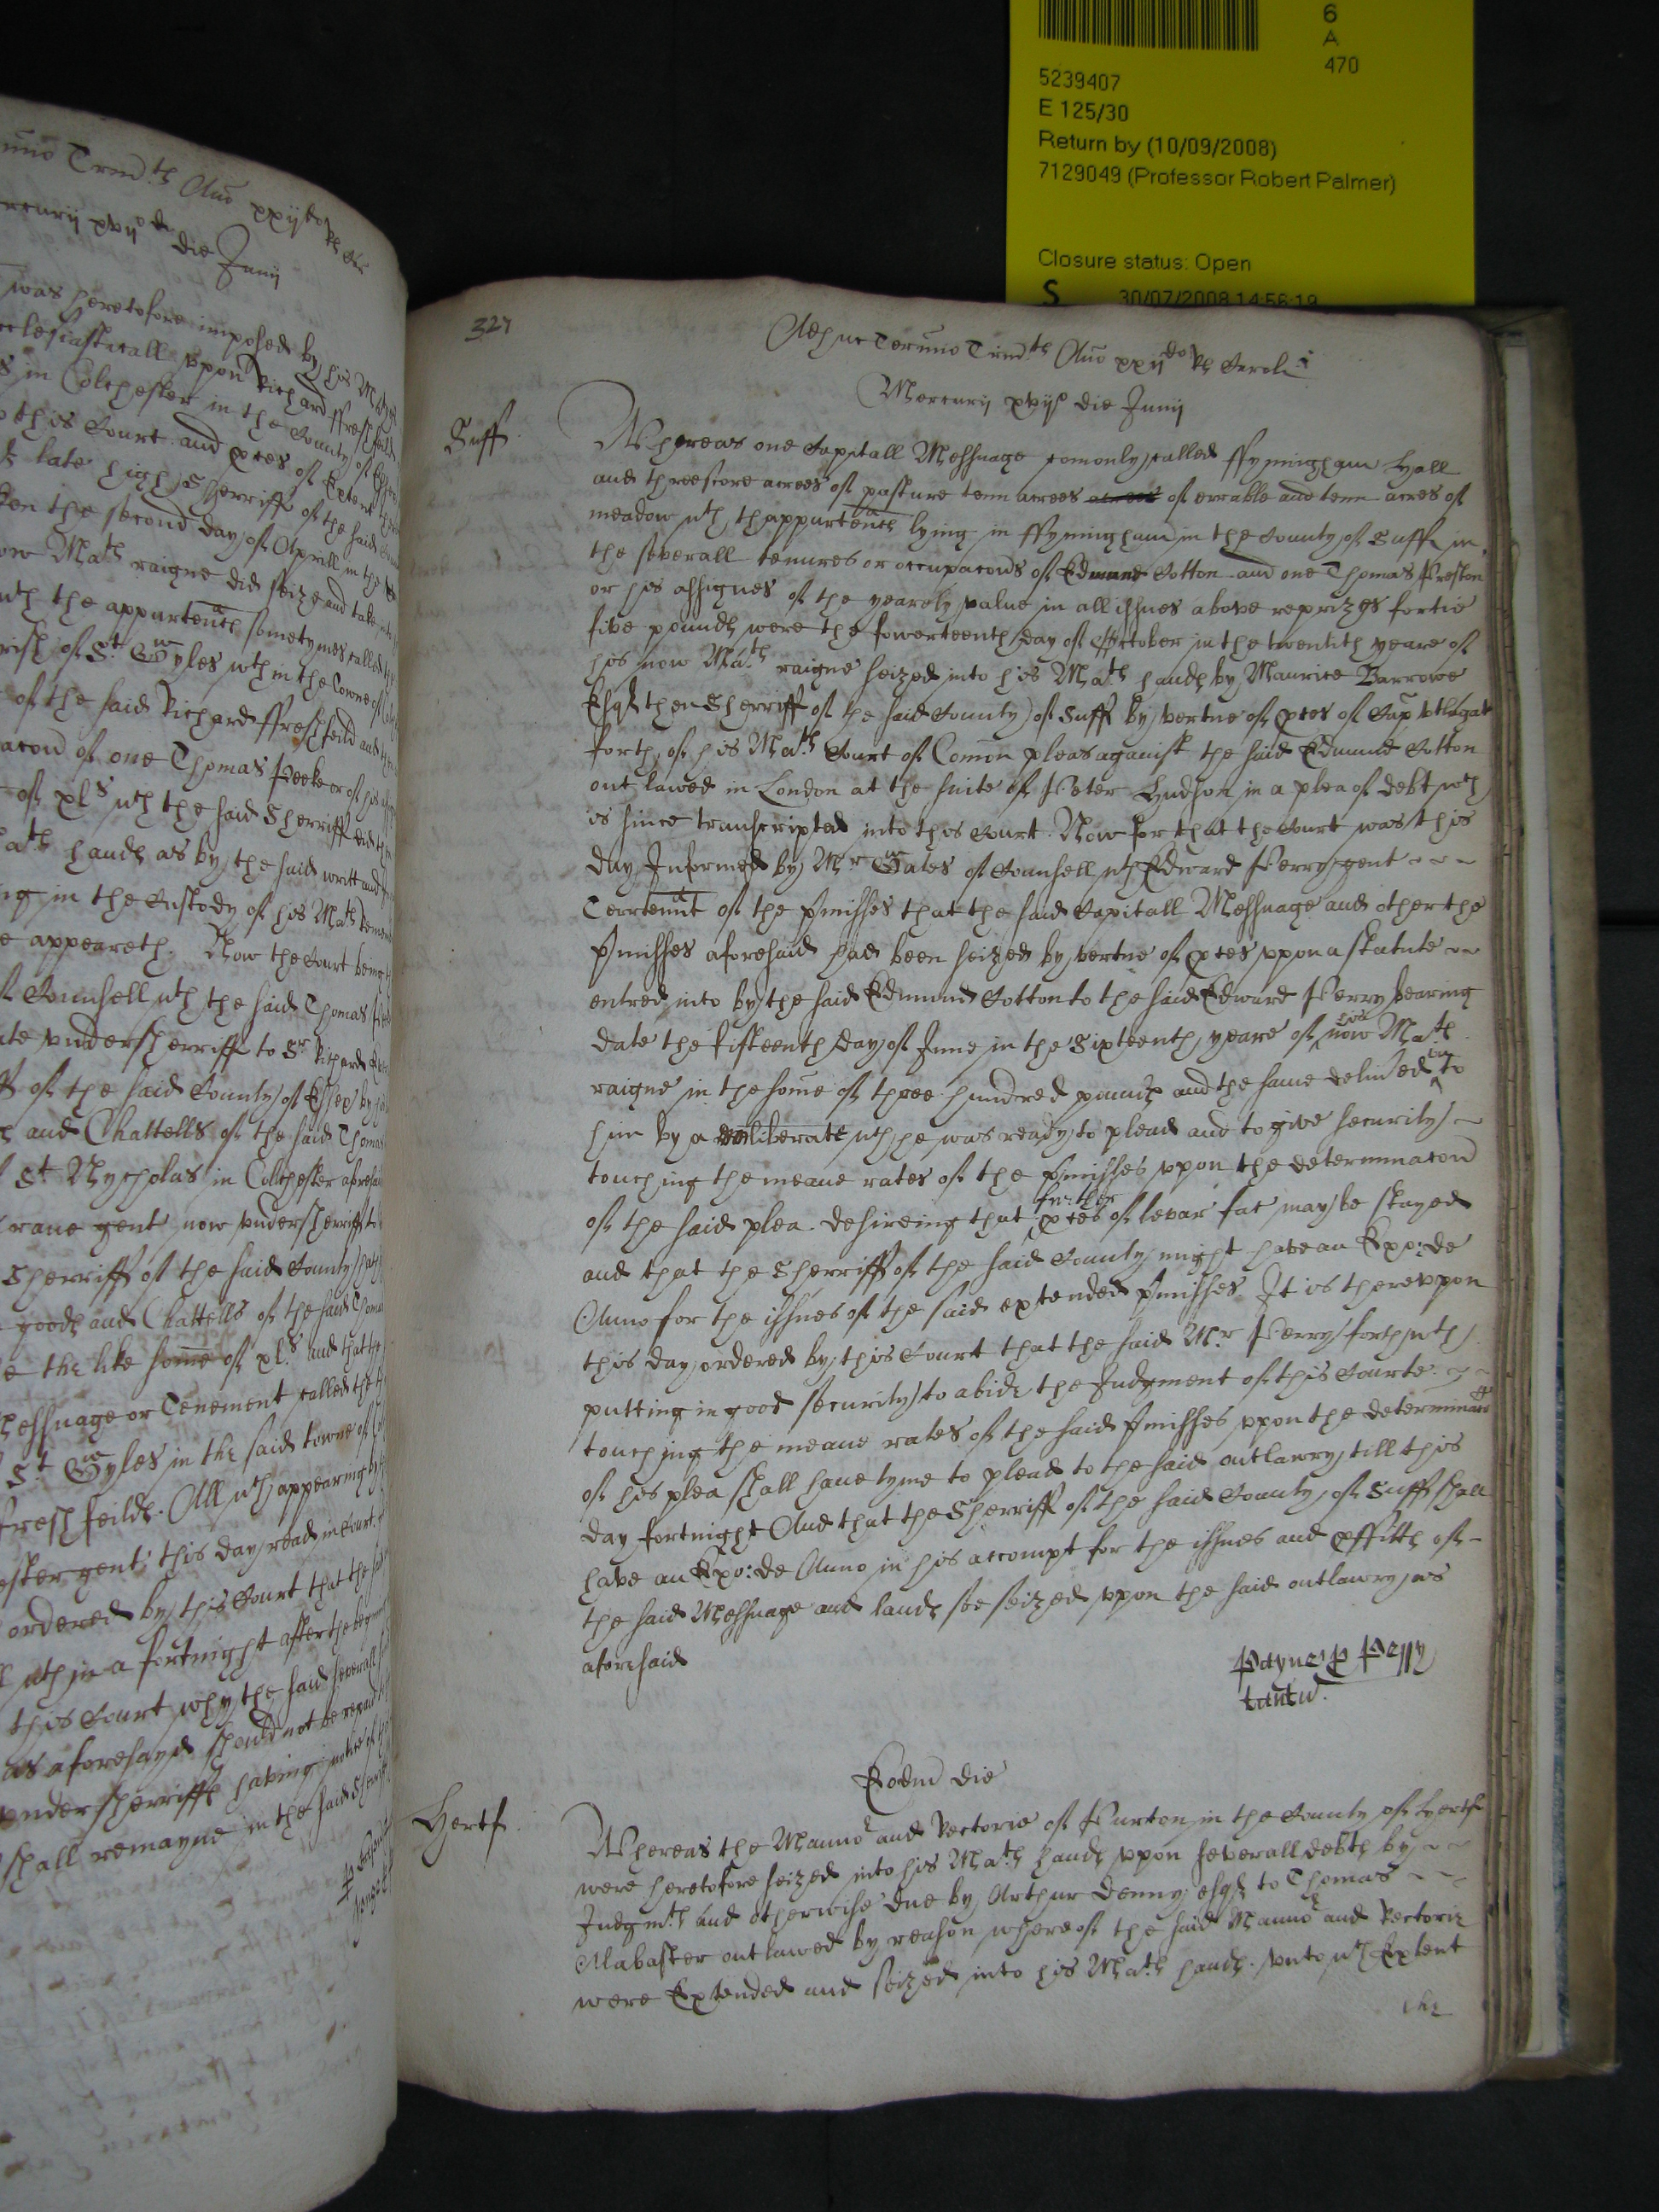 6
A
470
5239407
E 125/30
Return by (10/09/2008)
7129049 (Professor Robert Palmer)
Closure status: Open
S 30/07/2008 14:56:19
die Junij
was heretofore imposed by his
upon Richard
s in Colchester in the County of
this Court and pces of Extent
late high Sherriff of the said
the second day of Aprill in the
Matˢ raigne did seize and take
wᶜʰ the appurtenñces sometymes called
of Sᵗ Gyles wᵗʰin the towne of
of the said Richard ffreshfeild and
of one Thomas Peeke or of his
of xlˢ wᶜʰ the said Sherriff did
handes as by the said writt and
in the Custody of his Matˢ
appeareth. Now the Court being
Counsell wᵗʰ the said Thomas
undersherriffe to Sʳ Richard
of the said County of Essex by
and Chattells of the said Thomas
Sᵗ Nycholas in Colchester aforesaid
gent now undersherriff to
Sherriff of the said County
goodes and Chattells of the said Thomas
the like some of xlˢ and that the
Messuage or Tenement called the
Sᵗ Gyles in the said towne of
freshfeilde. All wᶜʰ appearing by
gent this day read in Court
ordered by this Court that the said
wᵗʰin a fortnight after the
this Court why the said severall
as aforesayd should not be repaid
undersherriffe having notice of
shall remayne in the said Sherriff
327
Adhuc Termino Trinᵗⁱˢ Anno xxijᵈᵒ Rs Caroli
Mercurij xvijᵒ die Junij
Suff.
Whereas one Capitall Messuage comonly called ffyningham Hall
and threescore acrees of pasture tenn acrees acrees of errable and tenn acres of
meadow wᵗʰ thappurtenñces lying in ffyningham in the County of Suff in
the severall tenures or occupacons of Edmund Cotton and one Thomas Preston
or his assignes of the yearely value in all issues above reprizes fortie
five poundes were the fowerteenth day of October in the twentith yeare of
his now Matˢ raigne seized into his Matˢ handes by Maurice Barrowe
Esqʳ then Sherriff of the said County of Suff by vertue of pces of Cap utlagat
forth of his Matˢ Court of Comon pleas against the said Edmund Cotton
outlawed in London at the suite of Peter Hudson in a plea of debt wᶜʰ
is since transcripted into this Court. Now for that the Court was this
day Informed by Mʳ Gates of Counsell wᵗʰ Edward Perry gent
Terrtennt of the pmisses that the said Capitall Messuage and other the
pmisses aforesaid had been seized by vertue of pces uppon a statute
entred into by the said Edmund Cotton to the said Edward Perry bearing
date the fifteenth day of June in the Sixteenth yeare of his now Matˢ
raigne in the some of three hundred poundes and the same delived to
him by a liberate wᶜʰ he was ready to plead and to give security
touching the meane rates of the pmisses uppon the determinacon
of the said plea. desireing that further pces of levar fac may be stayed
and that the Sherriff of the said County might have an Exo: de
Anno for the issues of the said extended pmisses. It is thereuppon
this day ordered by this Court that the said Mʳ Perry forthwᵗʰ
putting in good security to abide the Judgment of this Courte
touching the meane rates of the said pmisses uppon the determinacon
of his plea shall have tyme to plead to the said outlawry till this
day fortnight And that the Sherriff of the said County of Suff shall
have an Exo: de Anno in his accompt for the issues and pffittes of
the said Messuage and landes soe seized uppon the said outlawry as
aforesaid
Payne p Perry
tantu.
Eodm die
Hertf.
Whereas the Mannoʳ and Rectorie of Purton in the County of Hertf
were heretofore seized into his Matˢ handes uppon severall debtes by
Judgmᵗˢ and otherwise due by Arthur Denny esqʳ to Thomas
Alabaster outlawed by reason whereof the said Mannoʳ and Rectorie
were Extended and seized into his Matˢ handes. unto wᶜʰ Extent
the